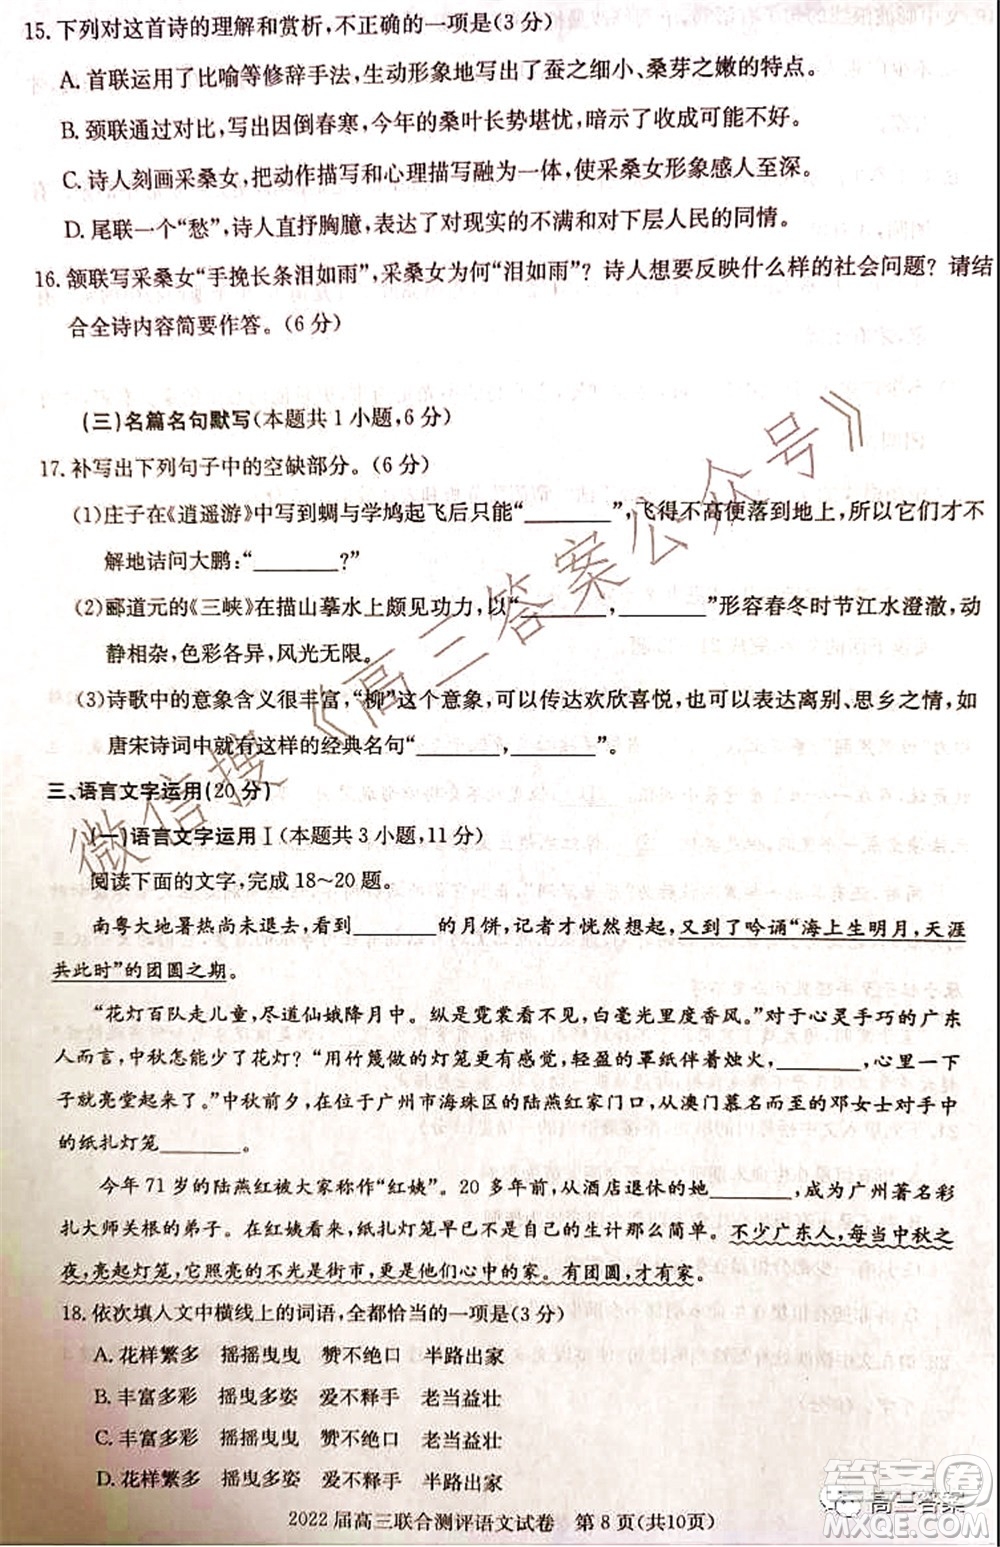 15.下列对这首诗的理解和赏析,不正确的一项是(3分)
A.首联运用了比喻等修辞手法,生动形象地写出了蚕之细小、桑芽之嫩的特点。
B.颈联通过对比,写出因倒春寒,今年的桑叶长势堪忧,暗示了收成可能不好。
C.诗人刻画采桑女,把动作描写和心理描写融为一体,使采桑女形象感人至深。
D.尾联一个“愁”,诗人直抒胸臆,表达了对现实的不满和对下层人民的同情。
16.颔联写采桑女“手挽长条泪如雨”,采桑女为何“泪如雨”?诗人想要反映什么样的社会问题?请结
合全诗内容简要作答。(6分)
(三)名篇名句默写(本题共1小题,6分)
17.补写出下列句子中的空缺部分。(6分)
(1)庄子在《逍遥游》中写到蜩与学鸠起飞后只能“________”,飞得不高便落到地上,所以它们才不
解地诘问大鹏:“________?”
(2)郦道元的《三峡》在描山摹水上颇见功力,以“________,________”形容春冬时节江水澄澈,动
静相杂,色彩各异,风光无限。
(3)诗歌中的意象含义很丰富,“柳”这个意象,可以传达欢欣喜悦,也可以表达离别、思乡之情,如
唐宋诗词中就有这样的经典名句“________,________”。
三、语言文字运用(20分)
(一)语言文字运用Ⅰ(本题共3小题,11分)
阅读下面的文字,完成18~20题。
南粤大地暑热尚未退去,看到________的月饼,记者才恍然想起,又到了吟诵“海上生明月,天涯
共此时”的团圆之期。
“花灯百队走儿童,尽道仙娥降月中。纵是霓裳看不见,白毫光里度香风。”对于心灵手巧的广东
人而言,中秋怎能少了花灯?“用竹篾做的灯笼更有感觉,轻盈的罩纸伴着烛火,________,心里一下
子就亮堂起来了。”中秋前夕,在位于广州市海珠区的陆燕红家门口,从澳门慕名而至的邓女士对手中
的纸扎灯笼________。
今年71岁的陆燕红被大家称作“红姨”。20多年前,从酒店退休的她________,成为广州著名彩
扎大师关根的弟子。在红姨看来,纸扎灯笼早已不是自己的生计那么简单。不少广东人,每当中秋之
夜,亮起灯笼,它照亮的不光是街市,更是他们心中的家。有团圆,才有家。
18.依次填入文中横线上的词语,全都恰当的一项是(3分)
A.花样繁多 摇摇曳曳 赞不绝口 半路出家
B.丰富多彩 摇曳多姿 爱不释手 老当益壮
C.丰富多彩 摇摇曳曳 赞不绝口 老当益壮
D.花样繁多 摇曳多姿 爱不释手 半路出家
2022届高三联合测评语文试卷 第8页(共10页)
微信搜《高三答案公众号》
高三答案
答案圈
MXQE.COM